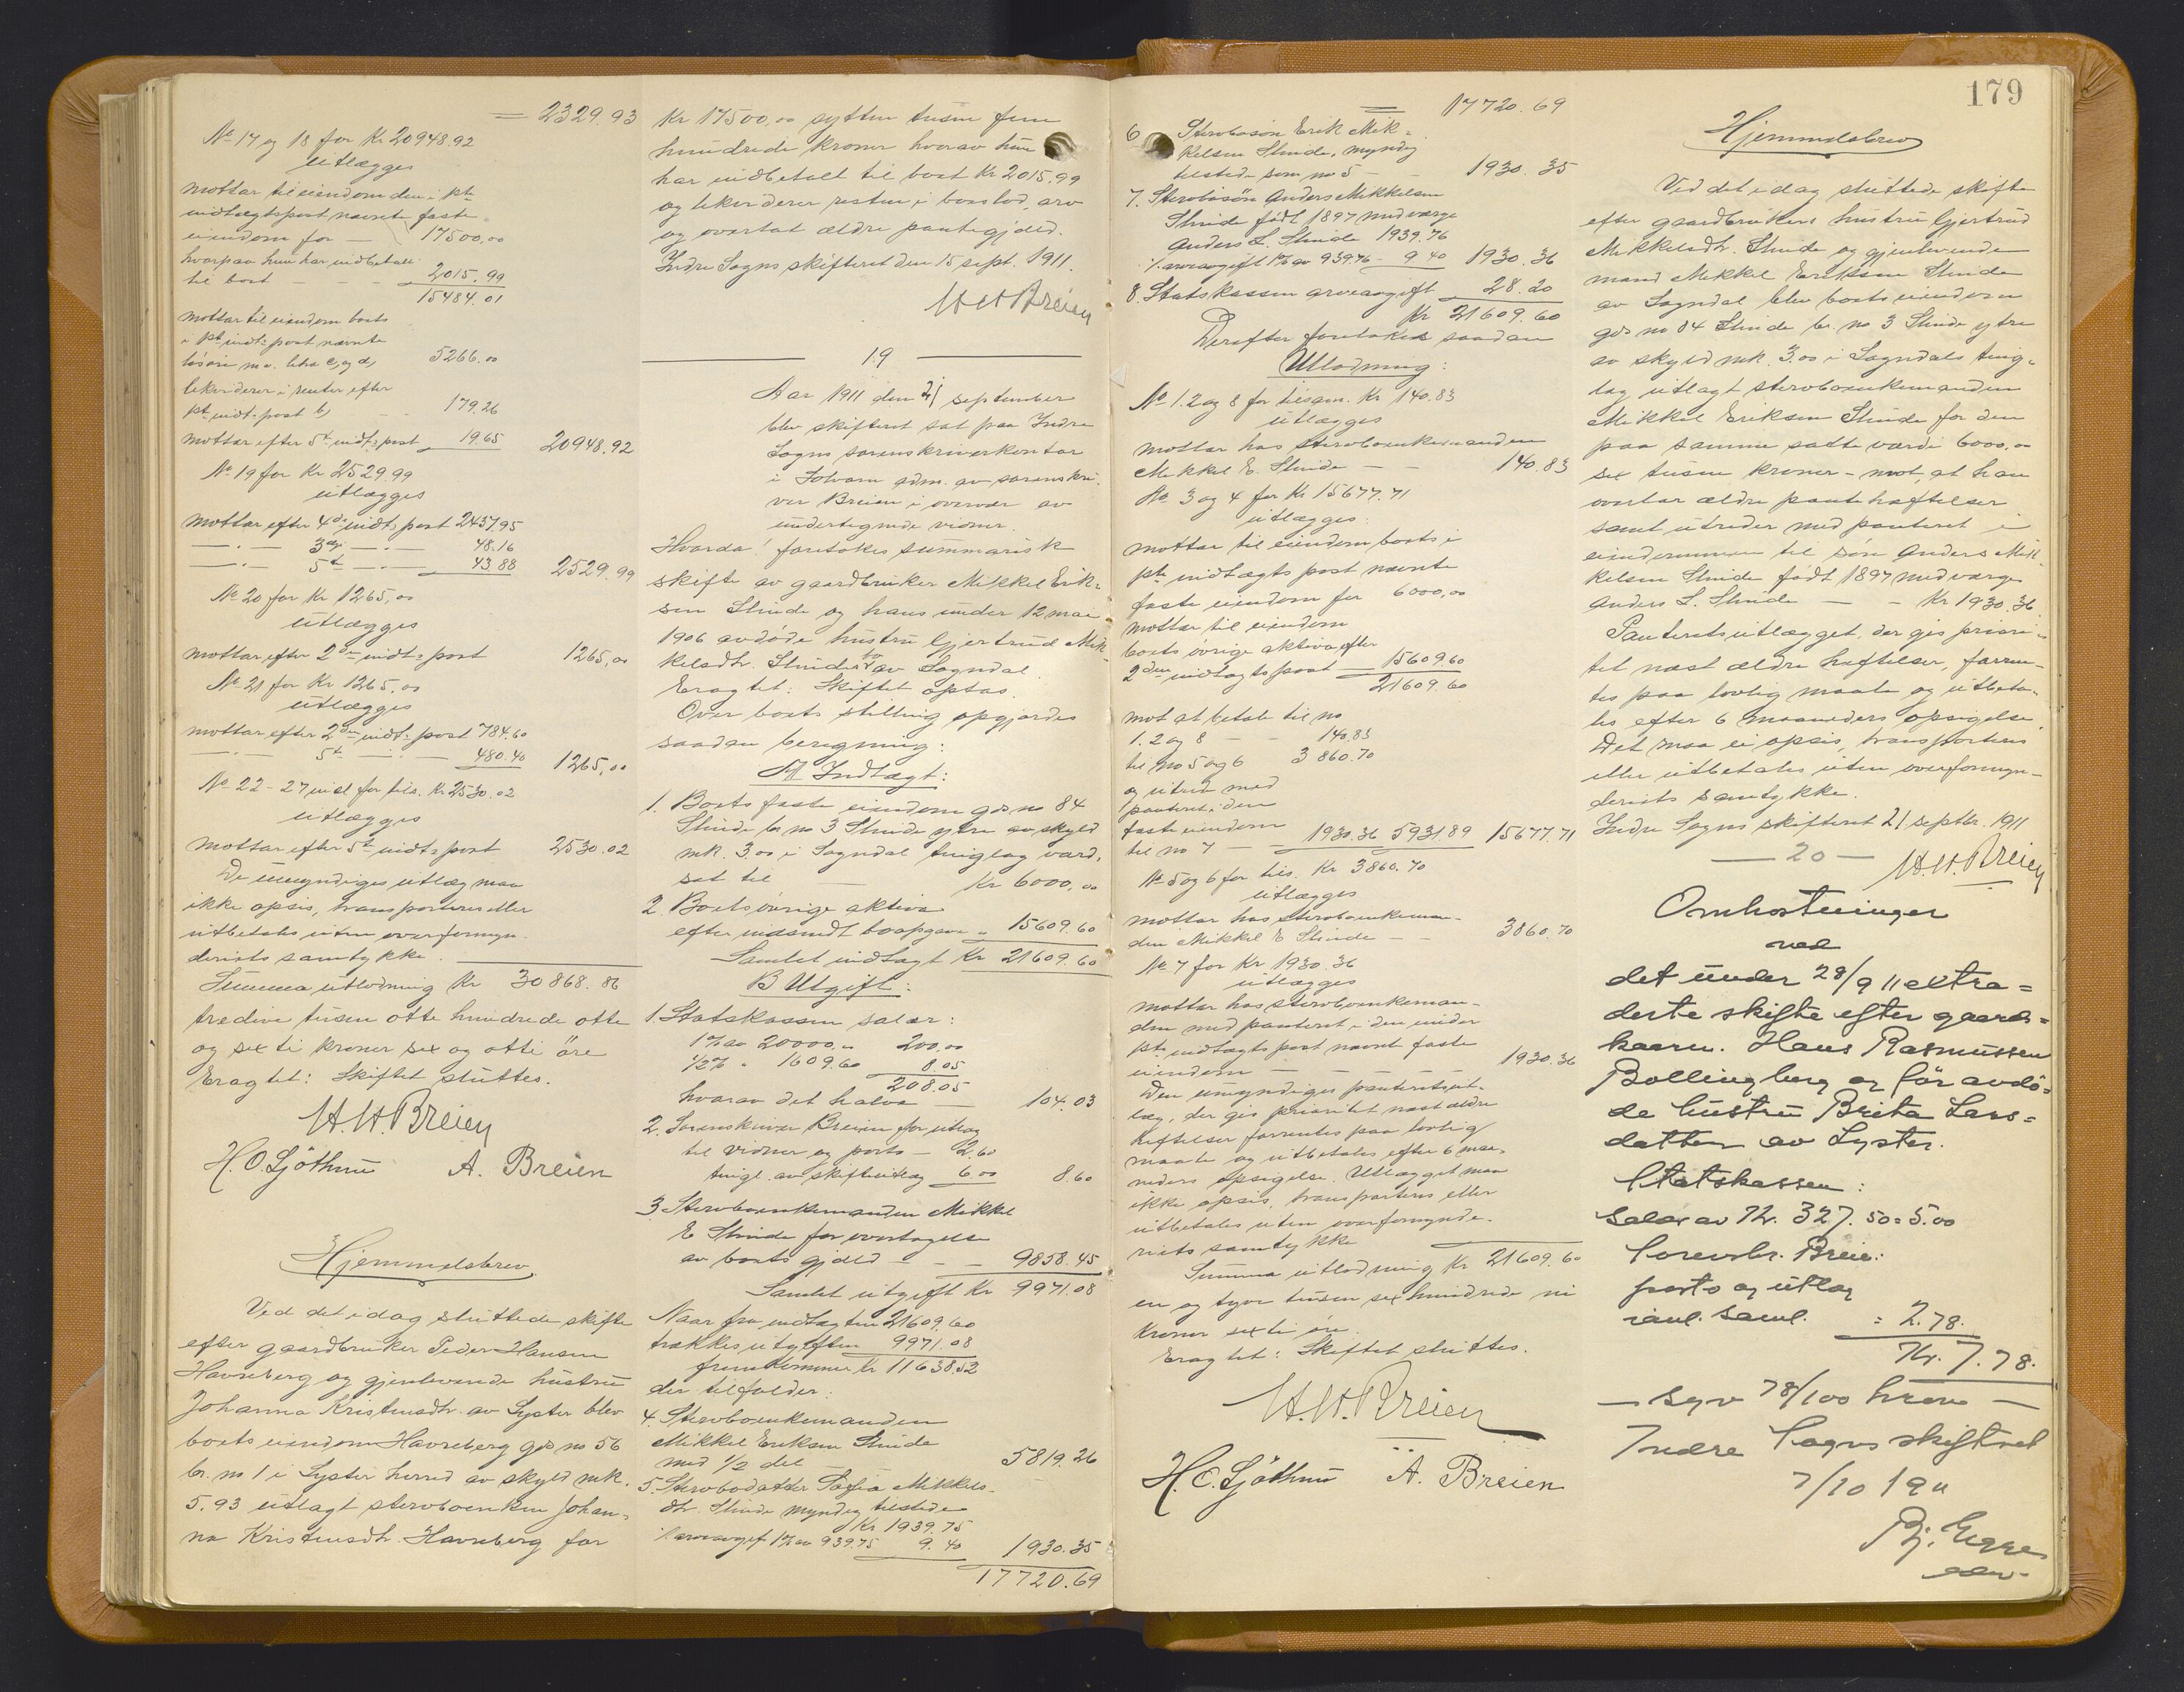 = 2329.93
No 17 og 18 for Kr 20948.92
utlægges
mottar til eiendom den i 1ste
indtægtspost nævnte faste
eiendom for — 17500,00
hvorpaa hun har indbetalt
til boet — — — 2015.99
15484.01
mottar til eiendom boets
i 1ste indt: post nævnte
løsøre m.v. litra c, og d, 5266.00
likviderer i renter efter
1ste indt: post b, 179.26
mottar efter 5te indt: post 19.65 20948.92
No 19 for Kr 2529.99
utlægges
mottar efter 4de indt: post 2437.95
—.— 3dje —.— 48.16
—.— 5te —.— 43.88 2529.99
No 20 for Kr 1265,00
utlægges
mottar efter 2den indt: post 1265,00
No 21 for Kr 1265.00
utlægges
mottar efter 2den indt: post 784.60
—.— 5te —.— 480.40 1265,00
No 22 - 27 incl for tils. Kr 2530.02
utlægges
mottar efter 5te indt: post 2530.02
De umyndiges utlæg maa
ikke opsies, transporteres eller
utbetales uten overformyn-
deriets samtykke.
Summa utlodning Kr 30868.86
tredive tusen otte hundrede otte
og sexti kroner sex og otti øre
Eragtet: Skiftet sluttes.
H.H. Breien
H.O. Sjøthun A. Breien
Hjemmelsbrev.
Ved det idag sluttede skifte
efter gaardbruker Peder Hansen
Havreberg og gjenlevende hustru
Johanna Kristensdtr. av Lyster blev
boets eiendom Havreberg gds no 56
br. no 1 i Lyster herred av skyld mk.
5.93 utlagt stervboenken Johan-
na Kristensdtr. Havreberg for
Kr 17500.00 sytten tusen fem
hundrede kroner hvorav hun
har indbetalt til boet Kr 2015.99
og likviderer resten i boslod, arv
og overtat ældre pantegjæld.
Indre Sogns skifteret den 15 sept. 1911.
H H Breien
19
Aar 1911 den 21 september
blev skifteret sat paa Indre
Sogns sorenskriverkontor
i Solvorn adm. av sorenskri-
ver Breien i overvær av
undertegnede vidner.
Hvorda! foretokes summarisk
skifte av gaardbruker Mikkel Erik-
sen Slinde og hans under 12 mai
1906 avdøde hustru Gjertrud Mik-
kelsdtr. Slindes bo av Sogndal.
Eragtet: Skiftet optas.
Over boets stilling opgjordes
saadan beregning:
A Indtægt:
1. Boets faste eiendom gds no 84
Slinde br no 3 Slinde ytre av skyld
mk. 3.00 i Sogndal tinglag værd-
sat til — Kr 6000,00
2. Boets øvrige aktiva
efter indsendt boopgave " 15609.60
Samlet indtægt Kr 21609.60
B Utgift:
1. Statskassen salær:
1% av 20000,00 200,00
1/2% " 1609.60 8.05
208.05
hvorav det halve — 104.03
2. Sorenskriver Breien for utlæg
til vidner og porto — 2.60
tingl. av skifteutlæg 6.00 8.60
3 Stervboenkemanden Mikkel
E Slinde for overtagelse
av boets gjæld — — 9858.45
Samlet utgift Kr 9971.08
Naar fra indtægten 21609.60
trækkes utgiften 9971.08
fremkommer Kr 11638.52
der tilfalder:
4. Stervboenkemanden
Mikkel Eriksen Slinde
med 1/2 del 5819.26
5. Stervbodatter Sofia Mikkels-
dtr. Slinde myndig tilstede
Kr 1939.75
% arveavgift 1% av 939.75 9.40 1930.35
17720.69
179
= 17720.69
6 Stervbosøn Erik Mik-
kelsen Slinde, myndig
tilstede som no 5 — 1930.35
7. Stervbosøn Anders Mikkelsen
Slinde født 1897 med værge
Anders L. Slinde 1939.76
% arveavgift 1% av 939.76 - 9 40 1930.36
8. Statskassen arveavgift 28.20
Kr 21609.60
Derefter foretokes saadan
Utlodning:
No 1. 2 og 8 for tilsam. Kr 140.83
utlægges
mottar hos stervboenkemanden
Mikkel E. Slinde — — 140.83
No 3 og 4 for Kr 15677.71
utlægges:
mottar til eiendom boets i
1ste indtægts post nævnte
faste eiendom for 6000,00
mottar til eiendom
boets øvrige aktiva efter
2den indtægtspost — 15609.60
21609.60
mot at betale til no
1. 2 og 8 — — 140.83
til no 5 og 6 3860.70
og utrede med
panteret i den
faste eiendom
til no 7 — 1930.36 5931.89 15677.71
No 5 og 6 for tils. Kr 3860.70
utlægges
mottar hos stervboenkeman-
den Mikkel E Slinde — — 3860.70
No 7 for Kr 1930.36
utlægges
mottar hos stervboenkeman-
den med panteret i den under
1ste indtægtspost nævnt faste
eiendom — — — — 1930.36
Den umyndiges panteretsut-
læg, der gis prioritet næst ældre
heftelser forrentes paa lovlig
maate og utbetales efter 6 maa-
neders opsigelse. Utlægget maa
ikke opsies, transporteres eller
utbetales uten overformynde-
riets samtykke
Summa utlodning Kr 21609.60
en og tyve tusen sex hundrede ni
kroner sexti øre.
Eragtet: Skiftet sluttes.
H.H. Breien
H.O. Sjøthun A. Breien
Hjemmelsbrev
Ved det idag sluttede skifte
efter gaardbrukers hustru Gjertrud
Mikkelsdtr. Slinde og gjenlevende
mand Mikkel Eriksen Slinde
av Sogndal blev boets eiendom
gds no 84 Slinde br. no 3 Slinde ytre
av skyld mk. 3.00 i Sogndals ting-
lag utlagt stervboenkemanden
Mikkel Eriksen Slinde for den
paa samme satte værdi 6000,00
sex tusen kroner - mot, at han
overtar ældre pantehæftelser
samt utreder med panteret i
eiendommen til søn Anders Mik-
kelsen Slinde født 1897 med værge
Anders L. Slinde — — Kr 1930.36
Panteretsutlægget, der gis priori-
tet næst ældre heftelser, forren-
tes paa lovlig maate og utbeta-
les efter 6 maaneders opsigelse
Det maa ei opsies, transporteres
eller utbetales uten overformyn-
deriets samtykke.
Indre Sogns skifteret 21 septbr. 1911
— 20 — H.H. Breien
Omkostninger
ved
det under 28/9 11 extra-
derte skifte efter gaard-
kaarm. Hans Rasmussen
Bolling berg og før avdø-
de hustru Brita Lars-
datter av Lyster.
Statskassen:
Salær av Kr. 327.50 = 5.00
Sorenskr. Breie:
porto og utlæg
ianl. saml. = 2.78.
Kr. 7.78.
— syv 78/100 krone —
Indre Sogns skifteret
7/10 1911
Bj. Egge
edsv.